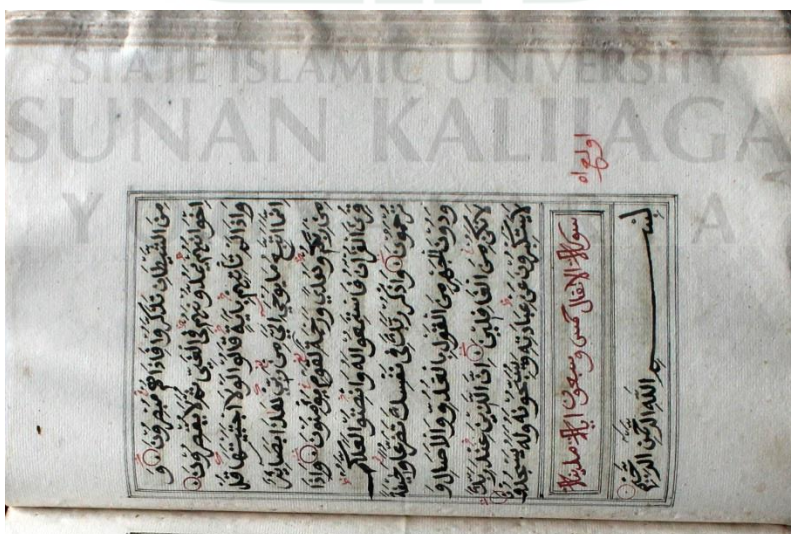 STATE ISLAMIC UNIVERSITY
SUNAN KALIJAGA
Y A
مِنَ الشَّيْطَانِ تَذَكَّرُوا فَاِذَاهُمْ مُبْصِرُونَ وَ
اِخْوَانُهُمْ يَمُدُّونَهُمْ فِى الْغَيِّ ثُمَّ لَا يُقْصِرُونَ
وَاِذَالَمْ تَأْتِهِمْ بِاٰيَةٍ قَالُوا لَوْلَا اجْتَبَيْتَهَا قُلْ
اِنَّمَا اَتَّبِعُ مَا يُوحٰى اِلَيَّ مِنْ رَبِّى هٰذَا بَصَآئِرُ
مِنْ رَبِّكُمْ وَهُدًى وَرَحْمَةٌ لِقَوْمٍ يُؤْمِنُونَ وَاِذَا
قُرِئَ الْقُرْاٰنُ فَاسْتَمِعُوا لَهُ وَاَنْصِتُوا لَعَلَّكُمْ
تُرْحَمُونَ وَاذْكُرْ رَبَّكَ فِى نَفْسِكَ تَضَرُّعًا وَخِيفَةً
وَدُونَ الْجَهْرِ مِنَ الْقَوْلِ بِالْغُدُوِّ وَالْاٰصَالِ وَ
لَاتَكُنْ مِنَ الْغَافِلِينَ اِنَّ الَّذِينَ عِنْدَ رَبِّكَ
لَايَسْتَكْبِرُونَ عَنْ عِبَادَتِهِ وَيُسَبِّحُونَهُ وَلَهُ يَسْجُدُونَ
سورة الانفال خمس وسبعون اية مدنية
بِسْمِ اللّٰهِ الرَّحْمٰنِ الرَّحِيمِ